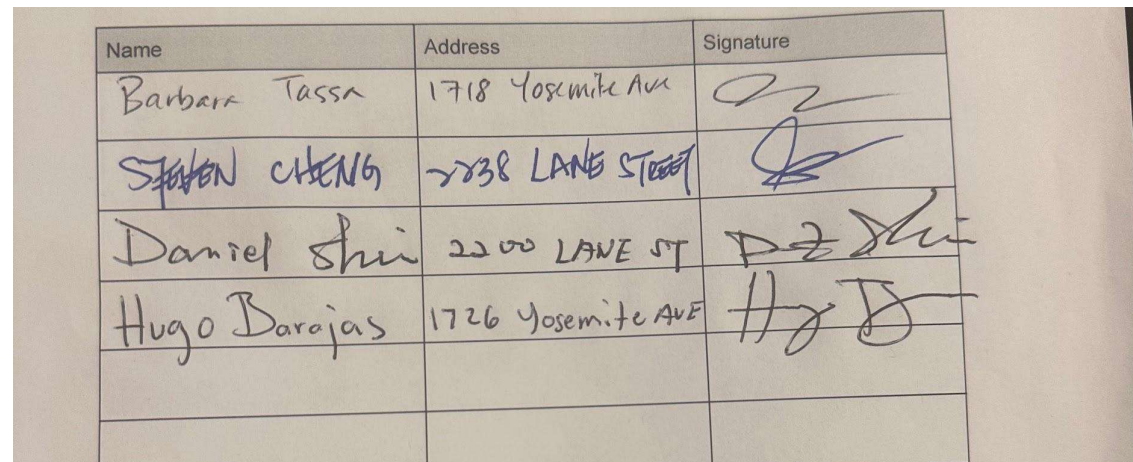 Name Address Signature
Barbara Tassa 1718 Yosemite Ave
STEVEN CHENG 2238 LANE STREET
Daniel Shin 2200 LANE ST D Z Shin
Hugo Barajas 1726 Yosemite AVE